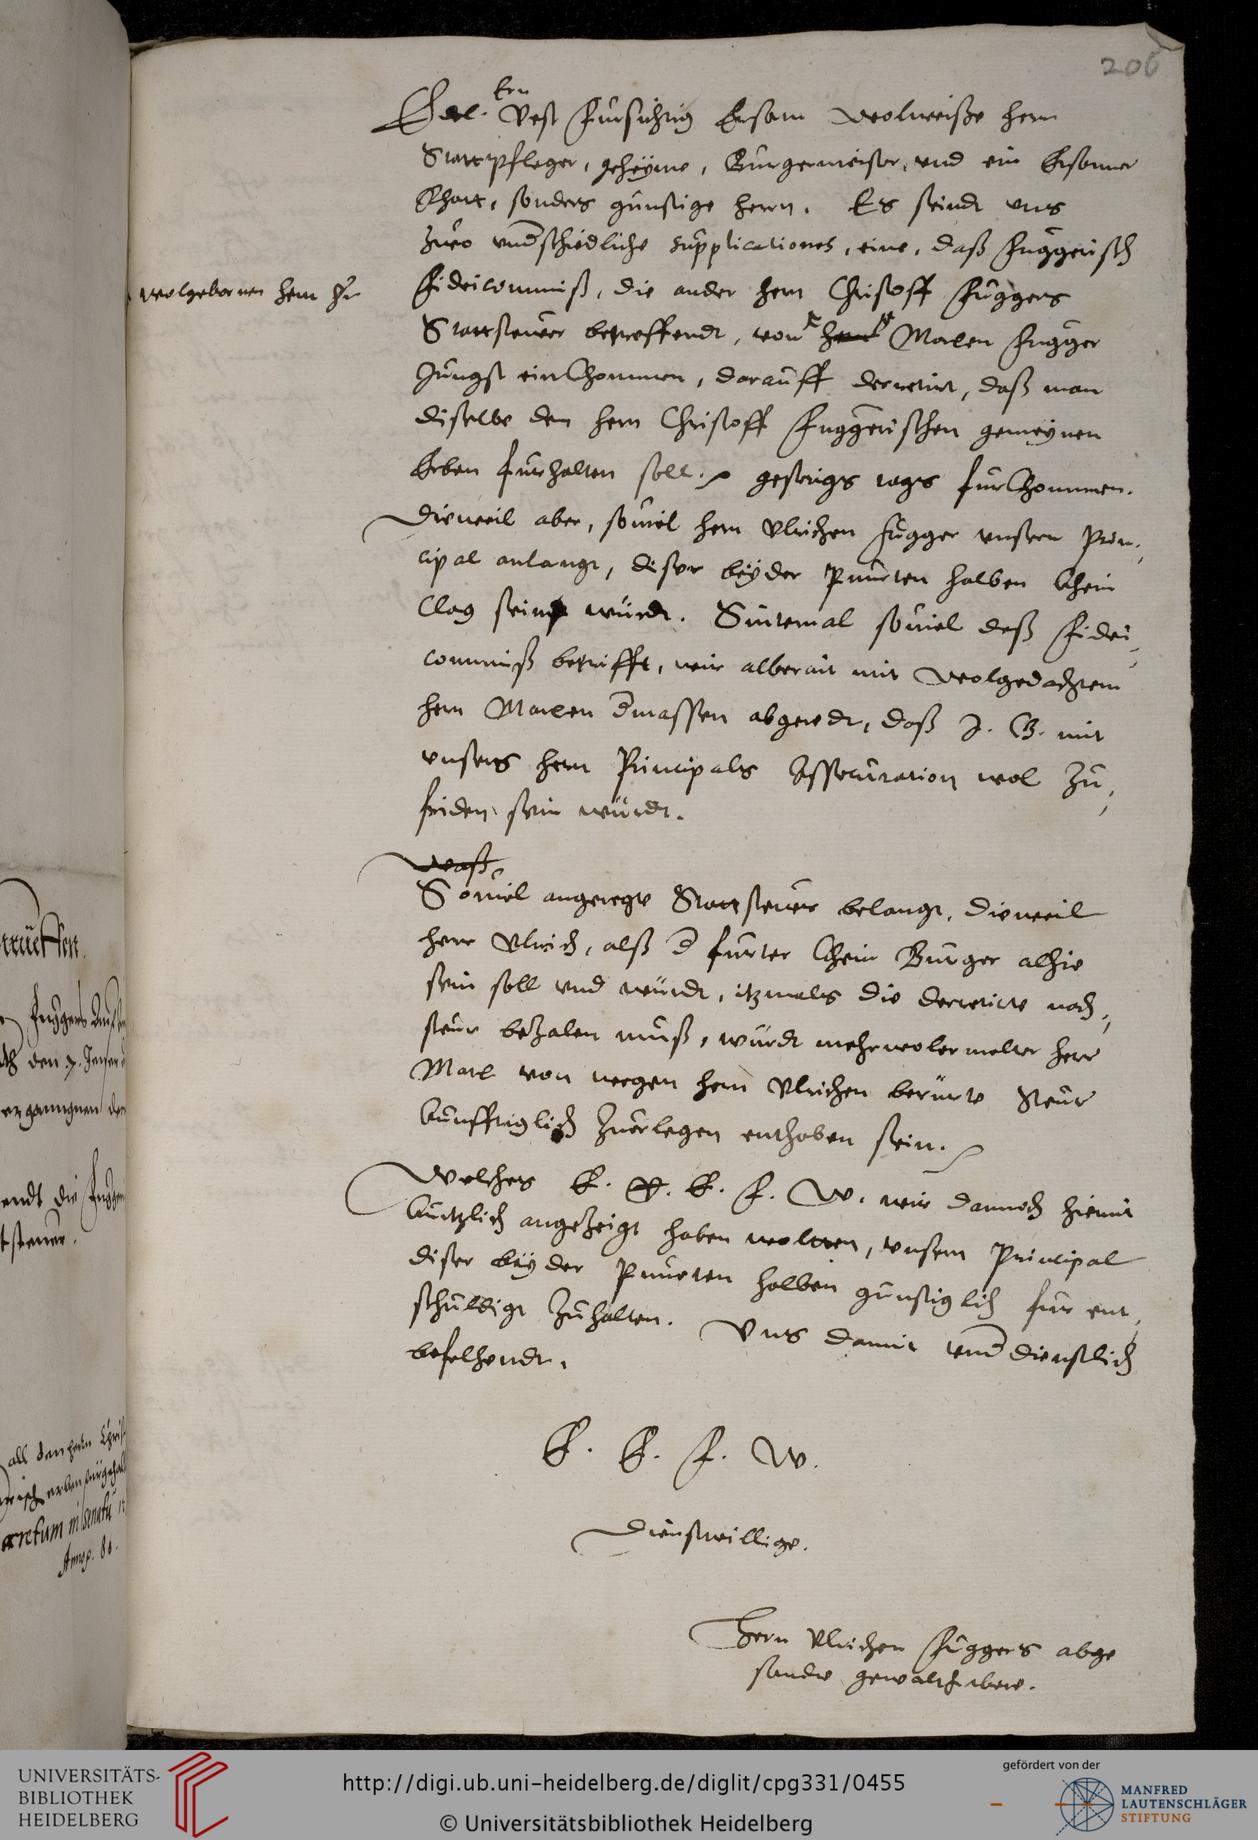 206
Ern
Edel. Vest Fursichtig Ersam wolweisse herrn
Stattpfleger, geheyme, Burgermeister, und ein Ersamer
Rhatt, sonders gunstige herrn. Es seindt uns
zwo underschiedliche supplicationes, eine, daß Fuggerisch
Fideicommiß, die ander herr Christoff Fuggers
wolgebornen herrn hr
Stattsteuer betreffendt, von herrn Marxen Fugger
Jungst ein khommen, darauff decretirt, daß man
diselbe den herrn Christoff Fuggerischen gemeynen
Erben furhalten soll. gestrigs tags furkhommen.
Dieweil aber, souiel herrn Ulrichen Fugger unsern Prin,
cipal anlangt, diser beyder Puncten halben khein
Clag sein würdt. Sintemal souiel deß Fidei,
commiß betrifft, wir alberait mit wolgedachtem
herrn Marxen dermassen abgeredt, daß J. G. mit
unsers herrn Principals Assecuration wol zu,
friden sein würdt.
Waß
Souiel angeregte Stattsteuer belangt, dieweil
herr Ulrich, alß der further khein Burger alhie
sein soll und würdt, itzmals die decretirte nach,
steur bezalen muß, würdt mehrwolermelter herr
Marx von wegen herrn Ulrichen berürte Steur
kunfftiglich zuerlegen enthaben sein.
Welches E. E. F. W. wir dannoch hiemit
kurtzlich angezeigt haben wolten, unsern Principal
diser beyder Puncten halben gunstiglich fur ent,
schuldigt zuhalten. Uns damit underdienstlich
befelhendt.
E. E. F. W.
Dienstwillige.
Herrn Ulrichen Fuggers abge
sandte gewalthabere.
Fuggers
den 7.
vergangnen
endt die Fugger
steuer.
all den herrn Christ
decretum in senatu
UNIVERSITÄTS-
BIBLIOTHEK
HEIDELBERG
http://digi.ub.uni-heidelberg.de/diglit/cpg331/0455
© Universitätsbibliothek Heidelberg
gefördert von der
MANFRED
LAUTENSCHLÄGER
STIFTUNG